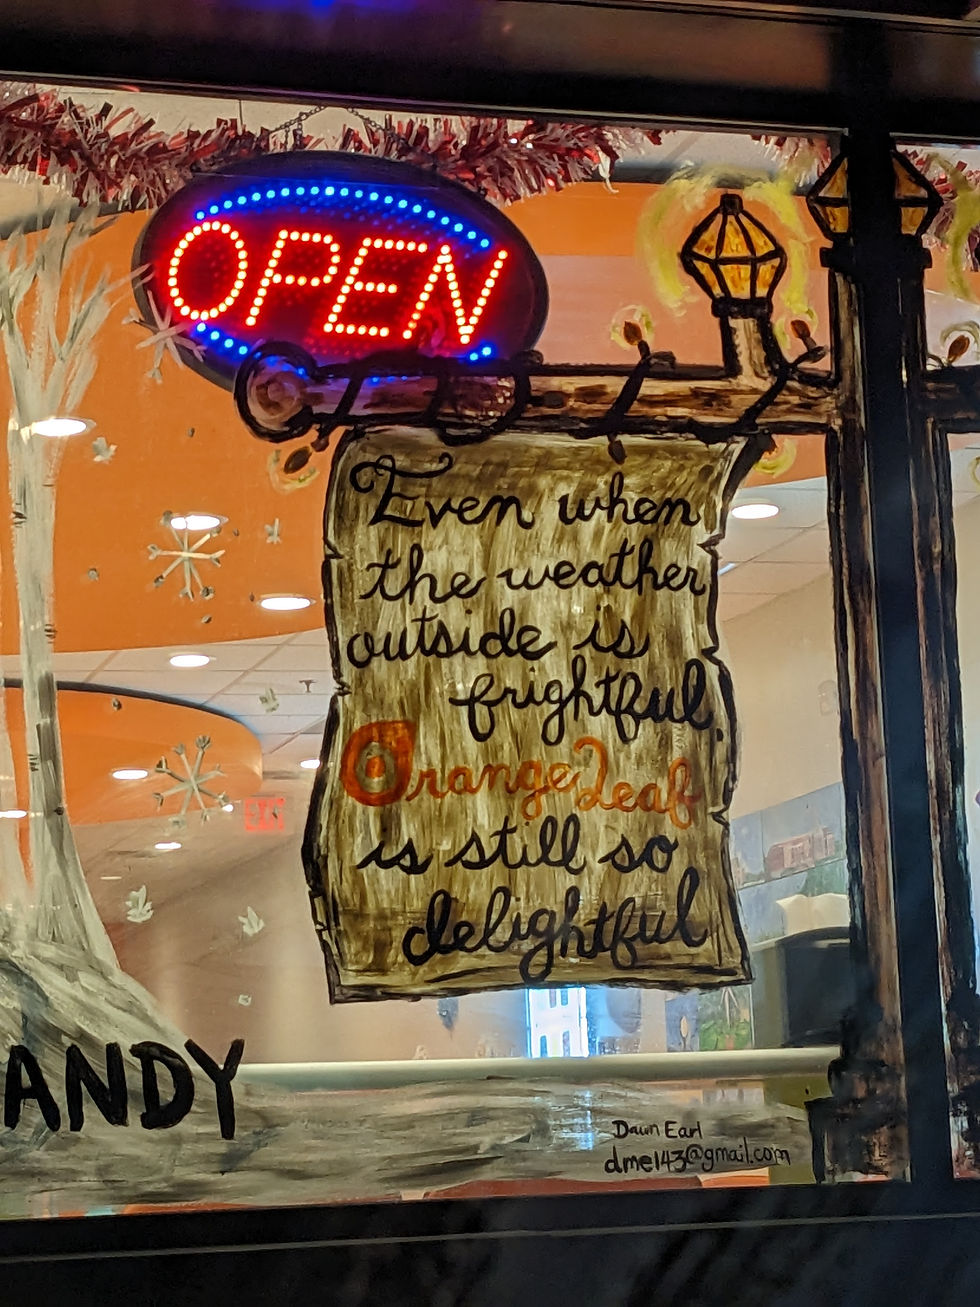 OPEN
Even when
the weather
outside is
frightful,
Orange Leaf
is still so
delightful
EXIT
ANDY
Dawn Earl
dme143@gmail.com